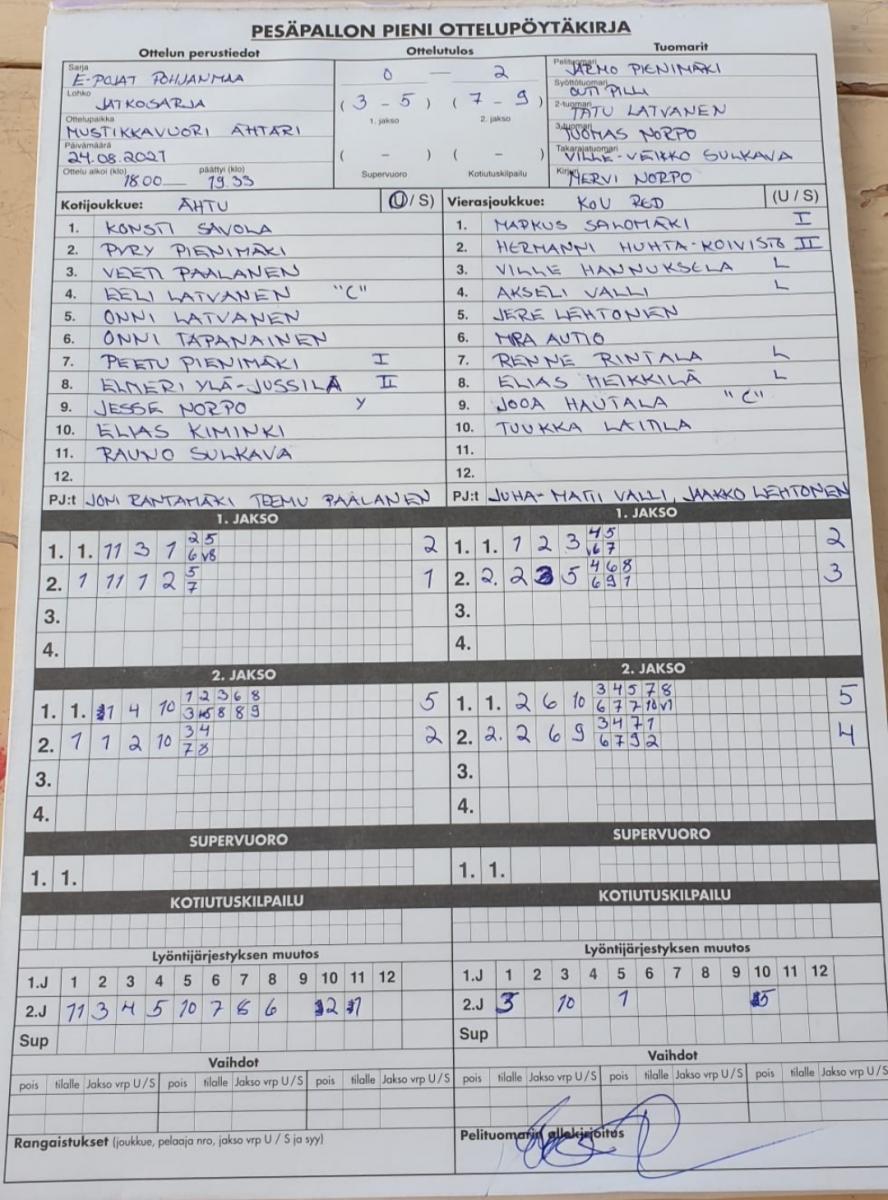 PESÄPALLON PIENI OTTELUPÖYTÄKIRJA
Ottelun perustiedot Ottelutulos Tuomarit
Sarja E-POJAT POHJANMAA
Lohko JATKOSARJA
Ottelupaikka MUSTIKKAVUORI ÄHTÄRI
Päivämäärä 24.08.2021
Ottelu alkoi (klo) 18.00 päättyi (klo) 19.33
0 — 2
( 3 - 5 ) ( 7 - 9 )
1. jakso 2. jakso
( - ) ( - )
Supervuoro Kotiutuskilpailu
Pelituomari JARMO PIENIMÄKI
Syöttötuomari OUTI PILLI
2-tuomari TATU LATVANEN
3-tuomari TUOMAS NORPO
Takarajatuomari VILLE-VEIKKO SULKAVA
Kirjuri MERVI NORPO
Kotijoukkue: ÄHTU (U/S)
1. KONSTI SAVOLA
2. PYRY PIENIMÄKI
3. VEETI PAALANEN
4. EELI LATVANEN "C"
5. ONNI LATVANEN
6. ONNI TAPANAINEN
7. PEETU PIENIMÄKI I
8. ELMERI YLÄ-JUSSILA II
9. JESSE NORPO Y
10. ELIAS KIMINKI
11. RAUNO SULKAVA
12.
PJ:t JONI RANTAMÄKI TEEMU PÄÄLANEN
Vierasjoukkue: KOU RED (U / S)
1. MARKUS SALOMÄKI I
2. HERMANNI HUHTA-KOIVISTO II
3. VILLE HANNUKSELA L
4. AKSELI VALLI L
5. JERE LEHTONEN
6. MRA AUTIO
7. RENNE RINTALA L
8. ELIAS HEIKKILÄ L
9. JOOA HAUTALA "C"
10. TUUKKA LAITILA
11.
12.
PJ:t JUHA-MATTI VALLI, JAAKKO LEHTONEN
1. JAKSO
1. 1. 11 3 1 2 5 2
6 v8
2. 1 11 1 2 5 1
7
3.
4.
1. JAKSO
1. 1. 1 2 3 4 5 2
v6 7
2. 2. 2 3 5 4 6 8 3
6 9 1
3.
4.
2. JAKSO
1. 1. 1 4 10 1 2 3 6 8 5
8 8 9
2. 1 1 2 10 3 4 2
7 8
3.
4.
2. JAKSO
1. 1. 2 6 10 3 4 5 7 8 5
6 7 7 10 v1
2. 2. 2 6 9 3 4 7 1 4
6 7 9 2
3.
4.
SUPERVUORO
1. 1.
SUPERVUORO
1. 1.
KOTIUTUSKILPAILU
KOTIUTUSKILPAILU
Lyöntijärjestyksen muutos
1.J 1 2 3 4 5 6 7 8 9 10 11 12
2.J 11 3 4 5 10 7 8 6 2 1
Sup
Lyöntijärjestyksen muutos
1.J 1 2 3 4 5 6 7 8 9 10 11 12
2.J 3 10 1 5
Sup
Vaihdot
pois tilalle Jakso vrp U / S pois tilalle Jakso vrp U / S pois tilalle Jakso vrp U / S
Vaihdot
pois tilalle Jakso vrp U / S pois tilalle Jakso vrp U / S pois tilalle Jakso vrp U / S
Rangaistukset (joukkue, pelaaja nro, jakso vrp U / S ja syy)
Pelituomarin allekirjoitus